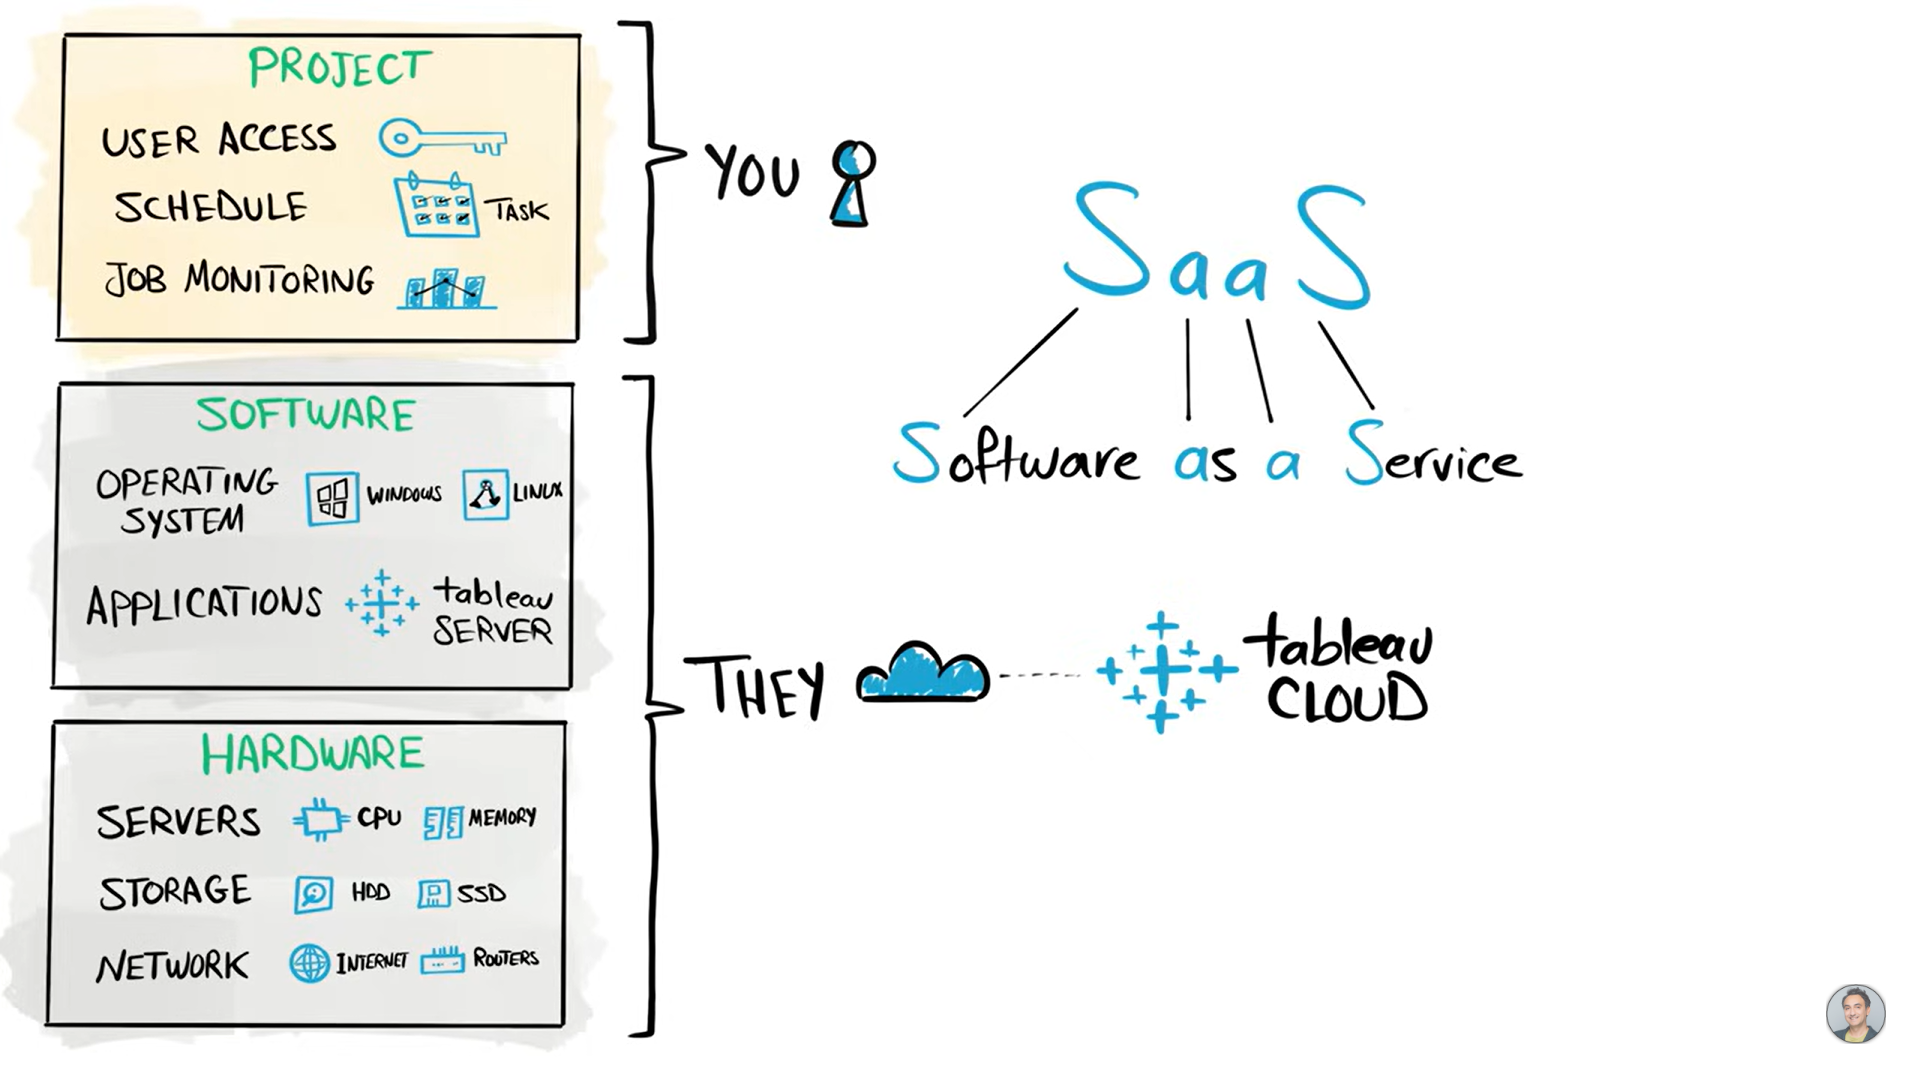 PROJECT
USER ACCESS
SCHEDULE TASK
JOB MONITORING
YOU
SOFTWARE
OPERATING SYSTEM WINDOWS LINUX
APPLICATIONS tableau SERVER
HARDWARE
SERVERS CPU MEMORY
STORAGE HDD SSD
NETWORK INTERNET ROUTERS
THEY
SaaS
Software as a Service
tableau
CLOUD